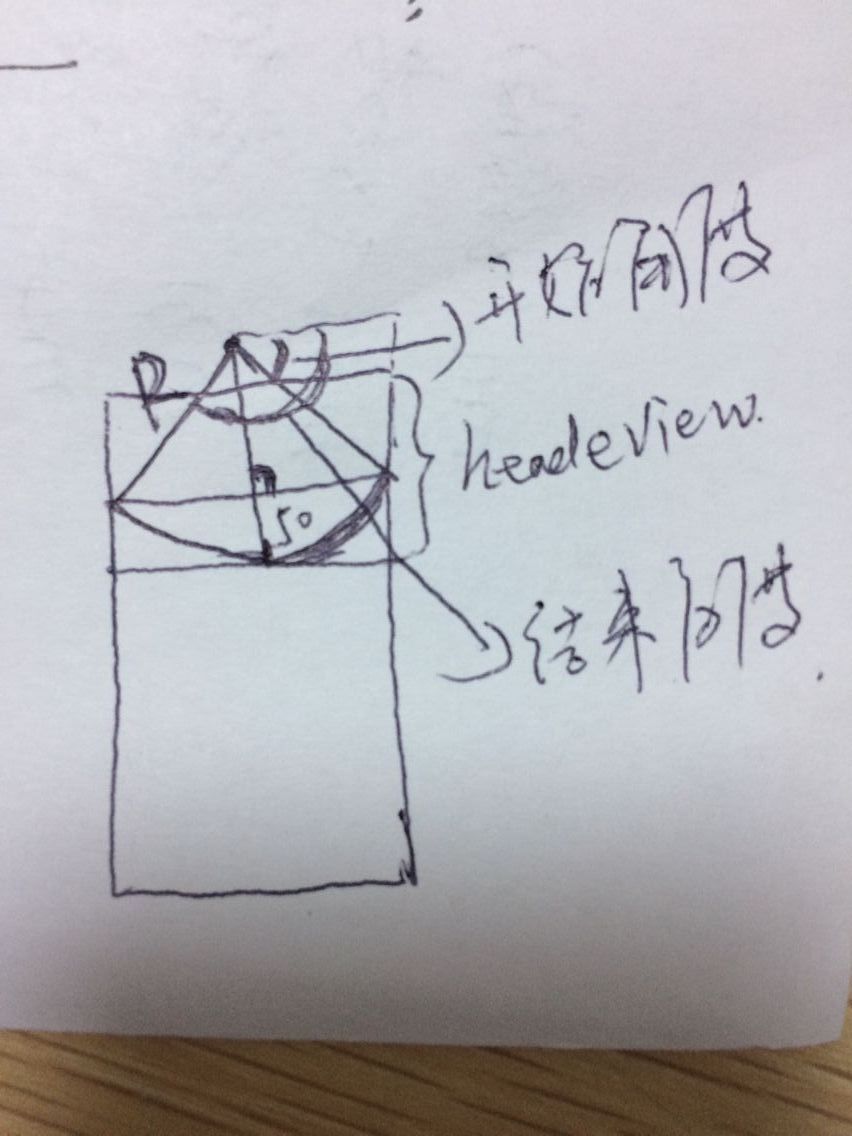 开始
R
headeView.
50
结束